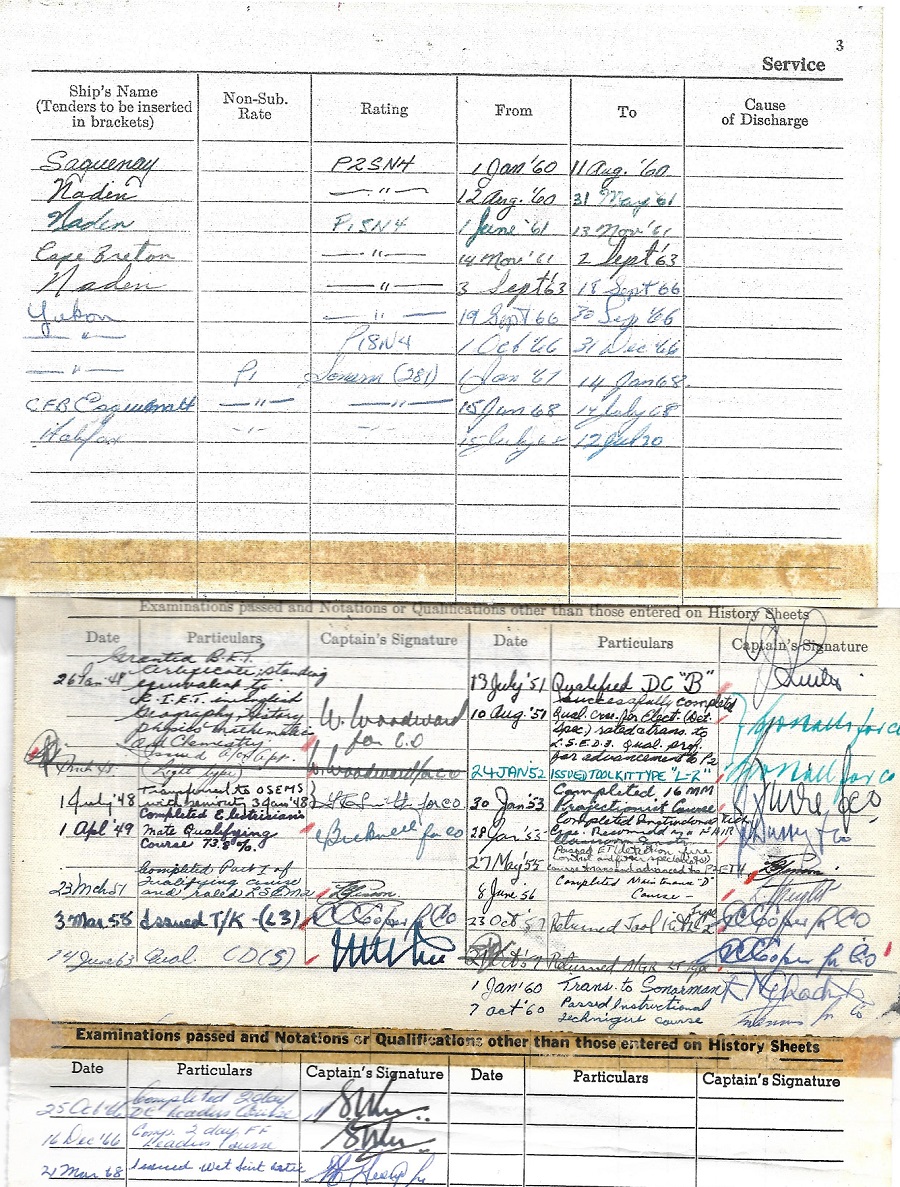 3
Service
Ship's Name (Tenders to be inserted in brackets) Non-Sub. Rate Rating From To Cause of Discharge
Saguenay P2SN4 1 Jan '60 11 Aug. '60
Naden — " — 12 Aug. '60 31 May '61
Naden P1SN4 1 June '61 13 Nov '61
Cape Breton — " — 14 Nov '61 2 Sept '63
Naden — " — 3 Sept '63 18 Sept '66
Yukon — " — 19 Sept '66 30 Sep '66
— " — P1SN4 1 Oct '66 31 Dec '66
— " — P1 Sonarm (281) 1 Jan '67 14 Jan 68
CFB Esquimalt — " — — " — 15 Jan 68 14 July 68
Halifax - " - 15 July 68
Examinations passed and Notations or Qualifications other than those entered on History Sheets
Date Particulars Captain's Signature Date Particulars Captain's Signature
26 Jan '48 Granted B.E.T.
Certificate; standing
equivalent to
R.I.E.T. in English
Geography, History
Physics Mathematics
and Chemistry.
W. Woodward
for C.O
(Light type) W. Woodward for co
1 July '48 Transferred to OSEMS
with seniority 3 Jan '48
Smith for co
1 Apl '49 Completed Electrician's
Mate Qualifying
Course 73.8%.
Bucknell for co
23 Mch 51 Completed Part I of
Qualifying course
and rated LSEM2
3 Mar 58 Issued T/K - (L3) Cooper for CO
24 June 63 Qual. CD(S)
13 July '51 Qualified DC "B"
10 Aug '51 Successfully completed
Qual. crse. for Elect. (Det.
Spec) rated & trans. to
L.S.E.D.3. Qual. prof.
for advancement to P2
for co
24 JAN 52 ISSUED TOOL KIT TYPE "L-2" for co
30 Jan '53 Completed 16 MM
Projectionist Course
for CO
28 Jan '55 Completed Instructional Tech
Crse. Recommd
27 May 55 Passed ET
8 June 56 Completed Maintance "D"
Course - Wright
23 Oct '57 Returned Tool Kit Type L2 Cooper for CO
Returned Cooper for CO
1 Jan '60 Trans. to Sonarman
7 Oct '60 Passed Instructional
Technique course
for co
Examinations passed and Notations or Qualifications other than those entered on History Sheets
Date Particulars Captain's Signature Date Particulars Captain's Signature
25 Oct '66 Completed 3 day
DC Leaders Course
16 Dec '66 Comp. 2 day FF
Leaders Course
21 Mar 68 Issued Wet Suit